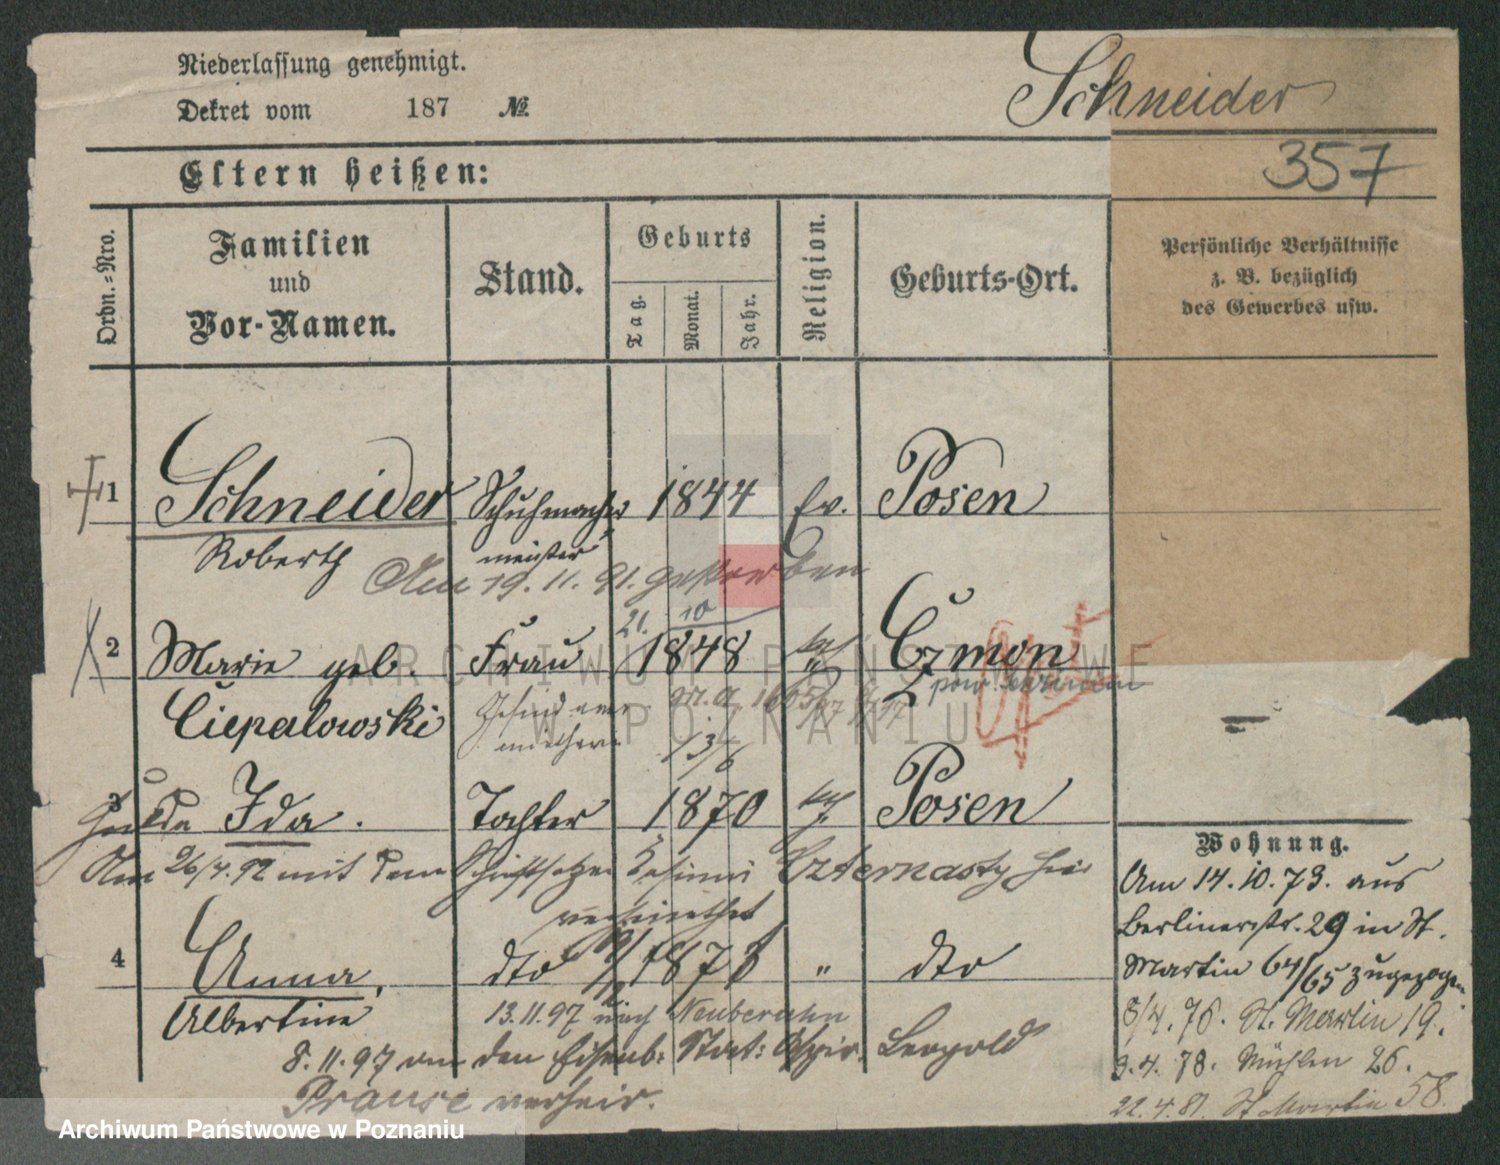 Niederlassung genehmigt.
Dekret vom 187 №
Schneider
357
Eltern heißen:
Ordn.-Nro.
Familien
und
Vor-Namen.
Stand.
Geburts
Tag.
Monat.
Jahr.
Religion.
Geburts-Ort.
Persönliche Verhältnisse
z. B. bezüglich
des Gewerbes usw.
1 Schneider Schuhmacher 1844 Ev. Posen
Roberth meister
Am 19. 11. 91. gestorben
21. 10
2 Marie geb. Frau 1848 Czmon
Ciepalowski
3 Ida. Tochter 1870 Posen
Am 26/4. 92 mit dem Schriftsetzer Czternasty hier
verheirathet
4 Anna, dto 1873 " dto
Albertine 13.11.97 nach
8. 11. 97 an den Eisenb: Stat: Aspir. Leopold
Prause verheir.
Wohnung.
Am 14. 10. 73. aus
Berlinerstr. 29 in St.
Martin 64/65 zugezogen
8/4. 76. St. Martin 19.
9. 4. 78. Mühlen 26.
22. 4. 81. St Martin 58.
ARCHIWUM PAŃSTWOWE
W POZNANIU
Archiwum Państwowe w Poznaniu